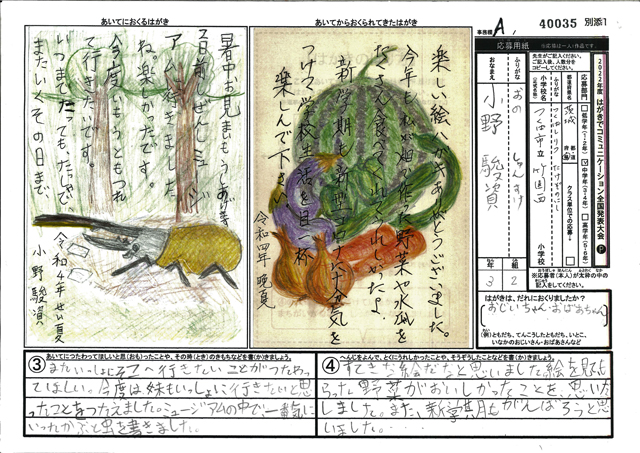 あいてにおくるはがき
暑中お見まいもうしあげます
2日前、ぜんしんミュージ
アムへ行きました
ね。楽しかったです。
今度はいもうともつれ
て行きたいです。
いつまでたっても、たっしゃで。
またいくその日まで、
令和4年 せい夏
小野 駿資
あいてからおくられてきたはがき
楽しい絵ハガキありがとうございました。
今年も私の畑で作った野菜や水瓜を
たくさん食べてくれてうれしかったよ。
新学期も新型コロナに負けず元気を
つけて学校生活を目一杯
楽しんで下さい。
令和四年 晩夏
事務欄 A
40035 別添1
応募用紙
※応募は一人1作品です。
先生がご記入ください。
ご記入後、人数分を
コピーしてください。
2022年度 はがきでコミュニケーション全国発表大会
応募部門
低学年(1・2年)
中学年(3・4年)
高学年(5・6年)
都道府県名
茨城
ふりがな
小学校名
つくば市立 竹園西 小学校
クラス単位での応募
ふりがな
おなまえ
おの しゅんすけ
小野 駿資
年 組
3 2
※応募者(本人)が太枠の中の
記入をしてください。
はがきは、だれにおくりましたか?
おじいちゃん・おばあちゃん
(例)ともだち、てんこうしたともだち、いとこ、
いなかのおじいさん・おばあさんなど
③ あいてにつたわってほしいと思(おも)ったことや、その時(とき)のきもちなどを書(か)きましょう。
またいっしょにそこへ行きたいことがつたわっ
てほしい。今度は妹もいっしょに行きたいと思
ったことをつたえました。ミュージアムの中で、一番気に
いったかぶと虫を書きました。
④ へんじをよんで、とくにうれしかったことや、そうぞうしたことなどを書(か)きましょう。
すてきな絵だなと思いました。絵を見ても
らった野菜がおいしかったことを、思いだ
しました。また、新学期もがんばろうと思
いました。